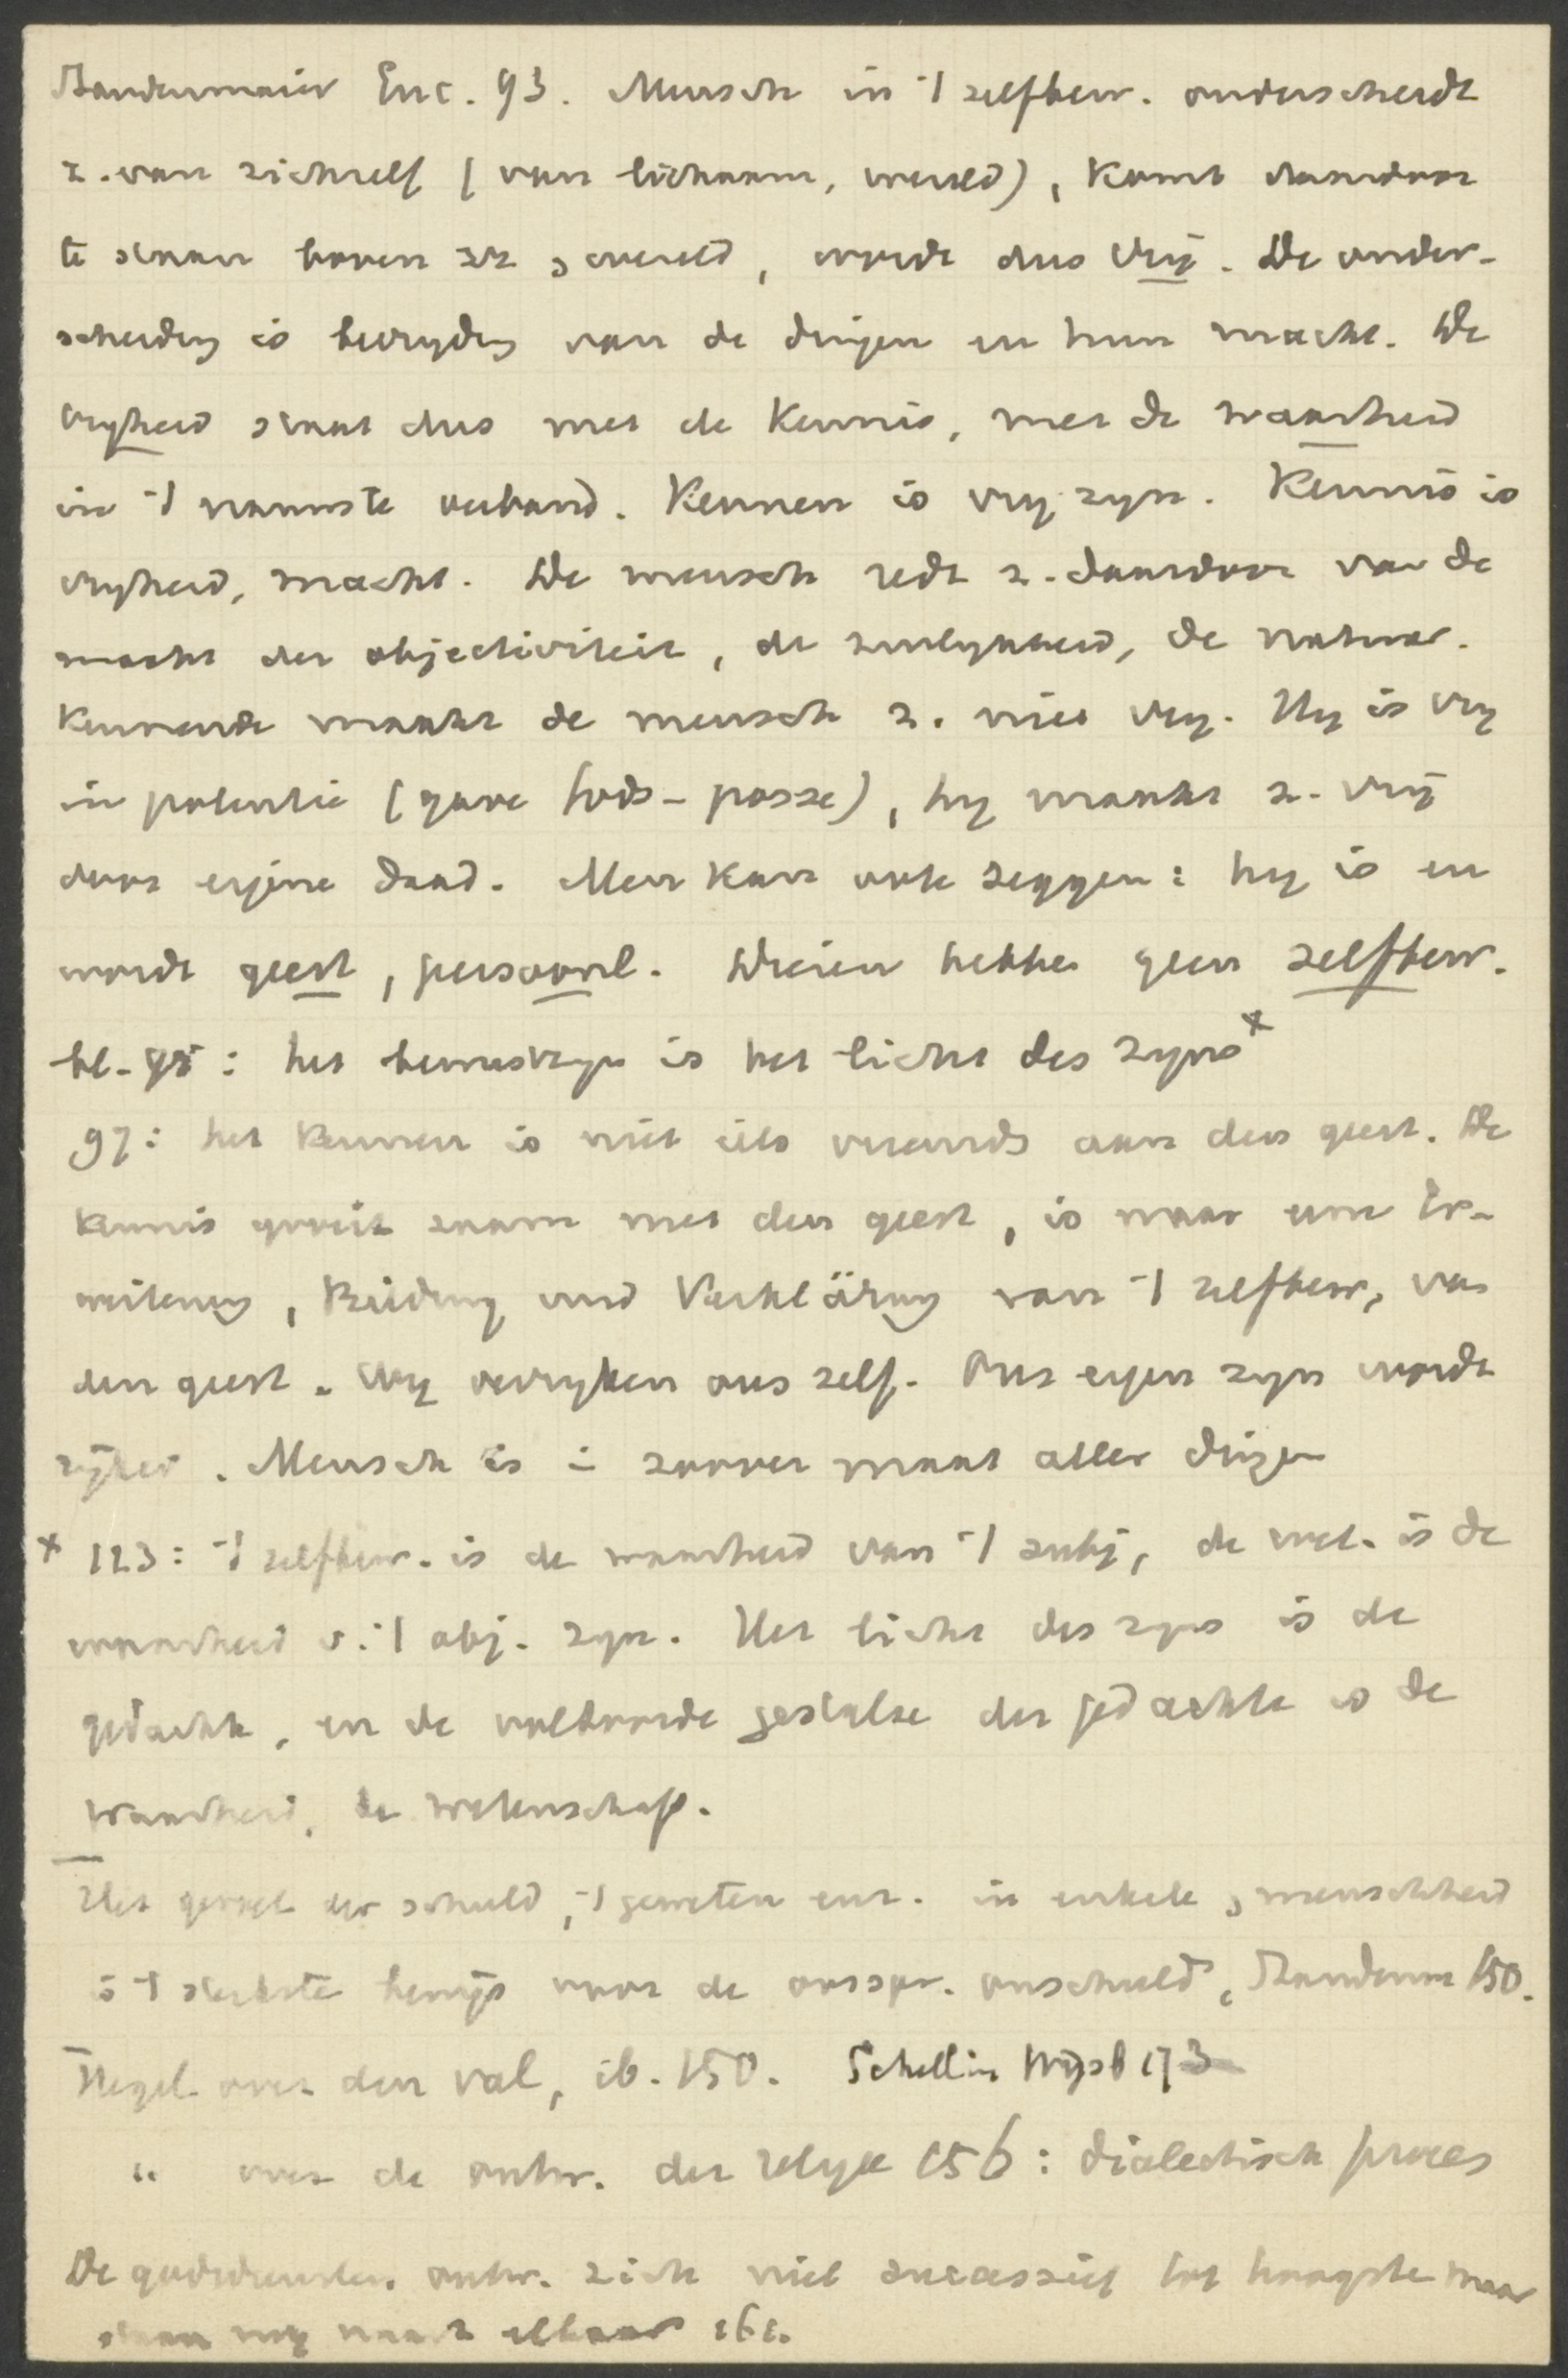 Staudenmaier Enc. 93. Mensch in 't zelfbew. onderscheidt
z. van zichzelf (van lichaam, wereld), komt daardoor
te staan boven zz & wereld, wordt dus vrij. De onder-
scheiding is bevryding van de dingen en hun macht. De
vryheid staat dus met de kennis, met de waarheid
in 't nauwste verband. Kennen is vry zyn. Kennis is
vryheid, macht. De mensch redt z. daardoor van de
macht der objectiviteit, de zinlykheid, de natuur.
Kennende maakt de mensch z. niet vry. Hy is vry
in potentie (gave Gods - posse), hy maakt z. vrij
door eigene daad. Men kan ook zeggen: hy is en
wordt geest, persoonl. Dieren hebben geen zelfbew.
bl. 95: het bewustzyn is het licht des zyns*
97: het kennen is niet iets vreemds aan den geest. De
kennis groeit saam met den geest, is maar eene Er-
weiterung, Bildung und Verklärung van 't zelfbew, van
den geest. Wy verryken ons zelf. Ons eigen zyn wordt
rijker. Mensch is i zoover maat aller dingen
* 123: 't zelfbew. is de waarheid van 't subj, de wet. is de
waarheid v. 't obj. zyn. Het licht des zyns is de
gedachte, en de voltooide gestalte der gedachte is de
waarheid, de wetenschap.
Het gevoel der schuld, 't geweten enz. in enkele & menschheid
is 't sterkste bewijs voor de oorspr. onschuld, Staudenm 150.
Hegel over den val, ib. 150. Schelling Wijsb 173
" over de ontw. der religie 156: dialectisch proces
De godsdiensten ontw. zich niet successief tot hoogste maar
staan nog naast elkaar 161.